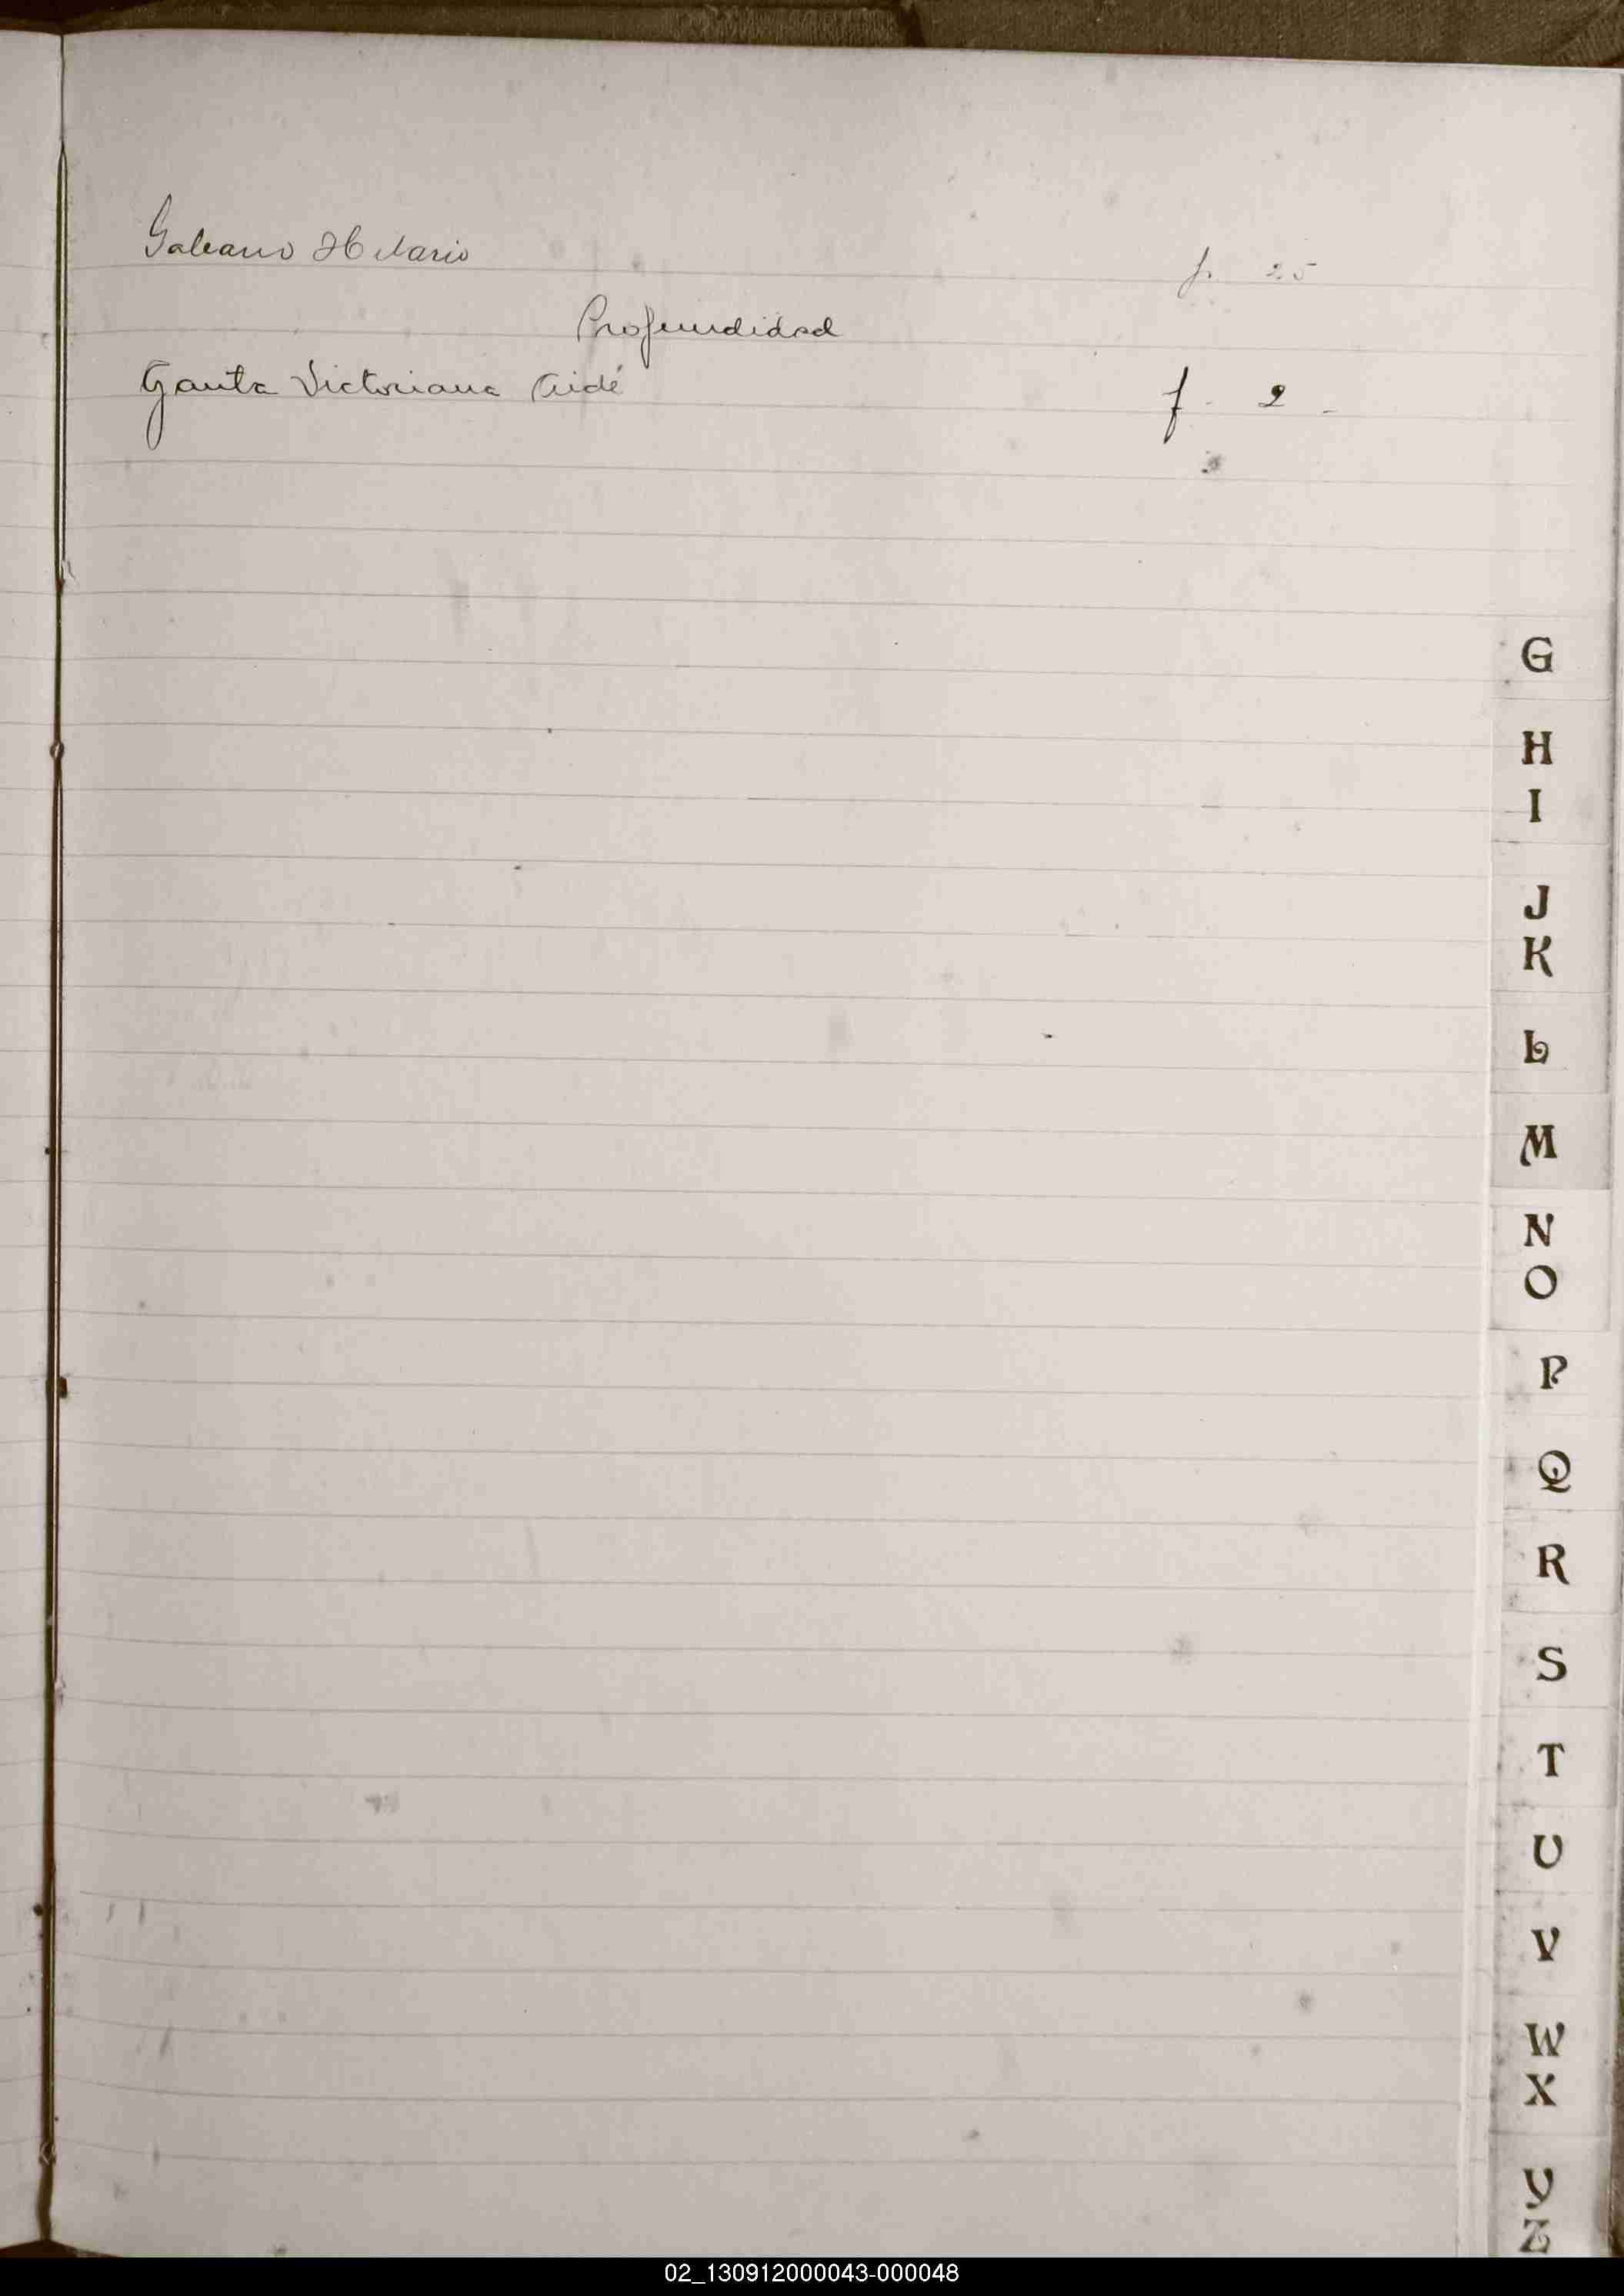 Galeano Hilario f. 25
Profundidad
Gauta Victoriana Aidé f. 2
G
H
I
J
K
L
M
N
O
P
Q
R
S
T
U
V
W
X
Y
Z
02_130912000043-000048